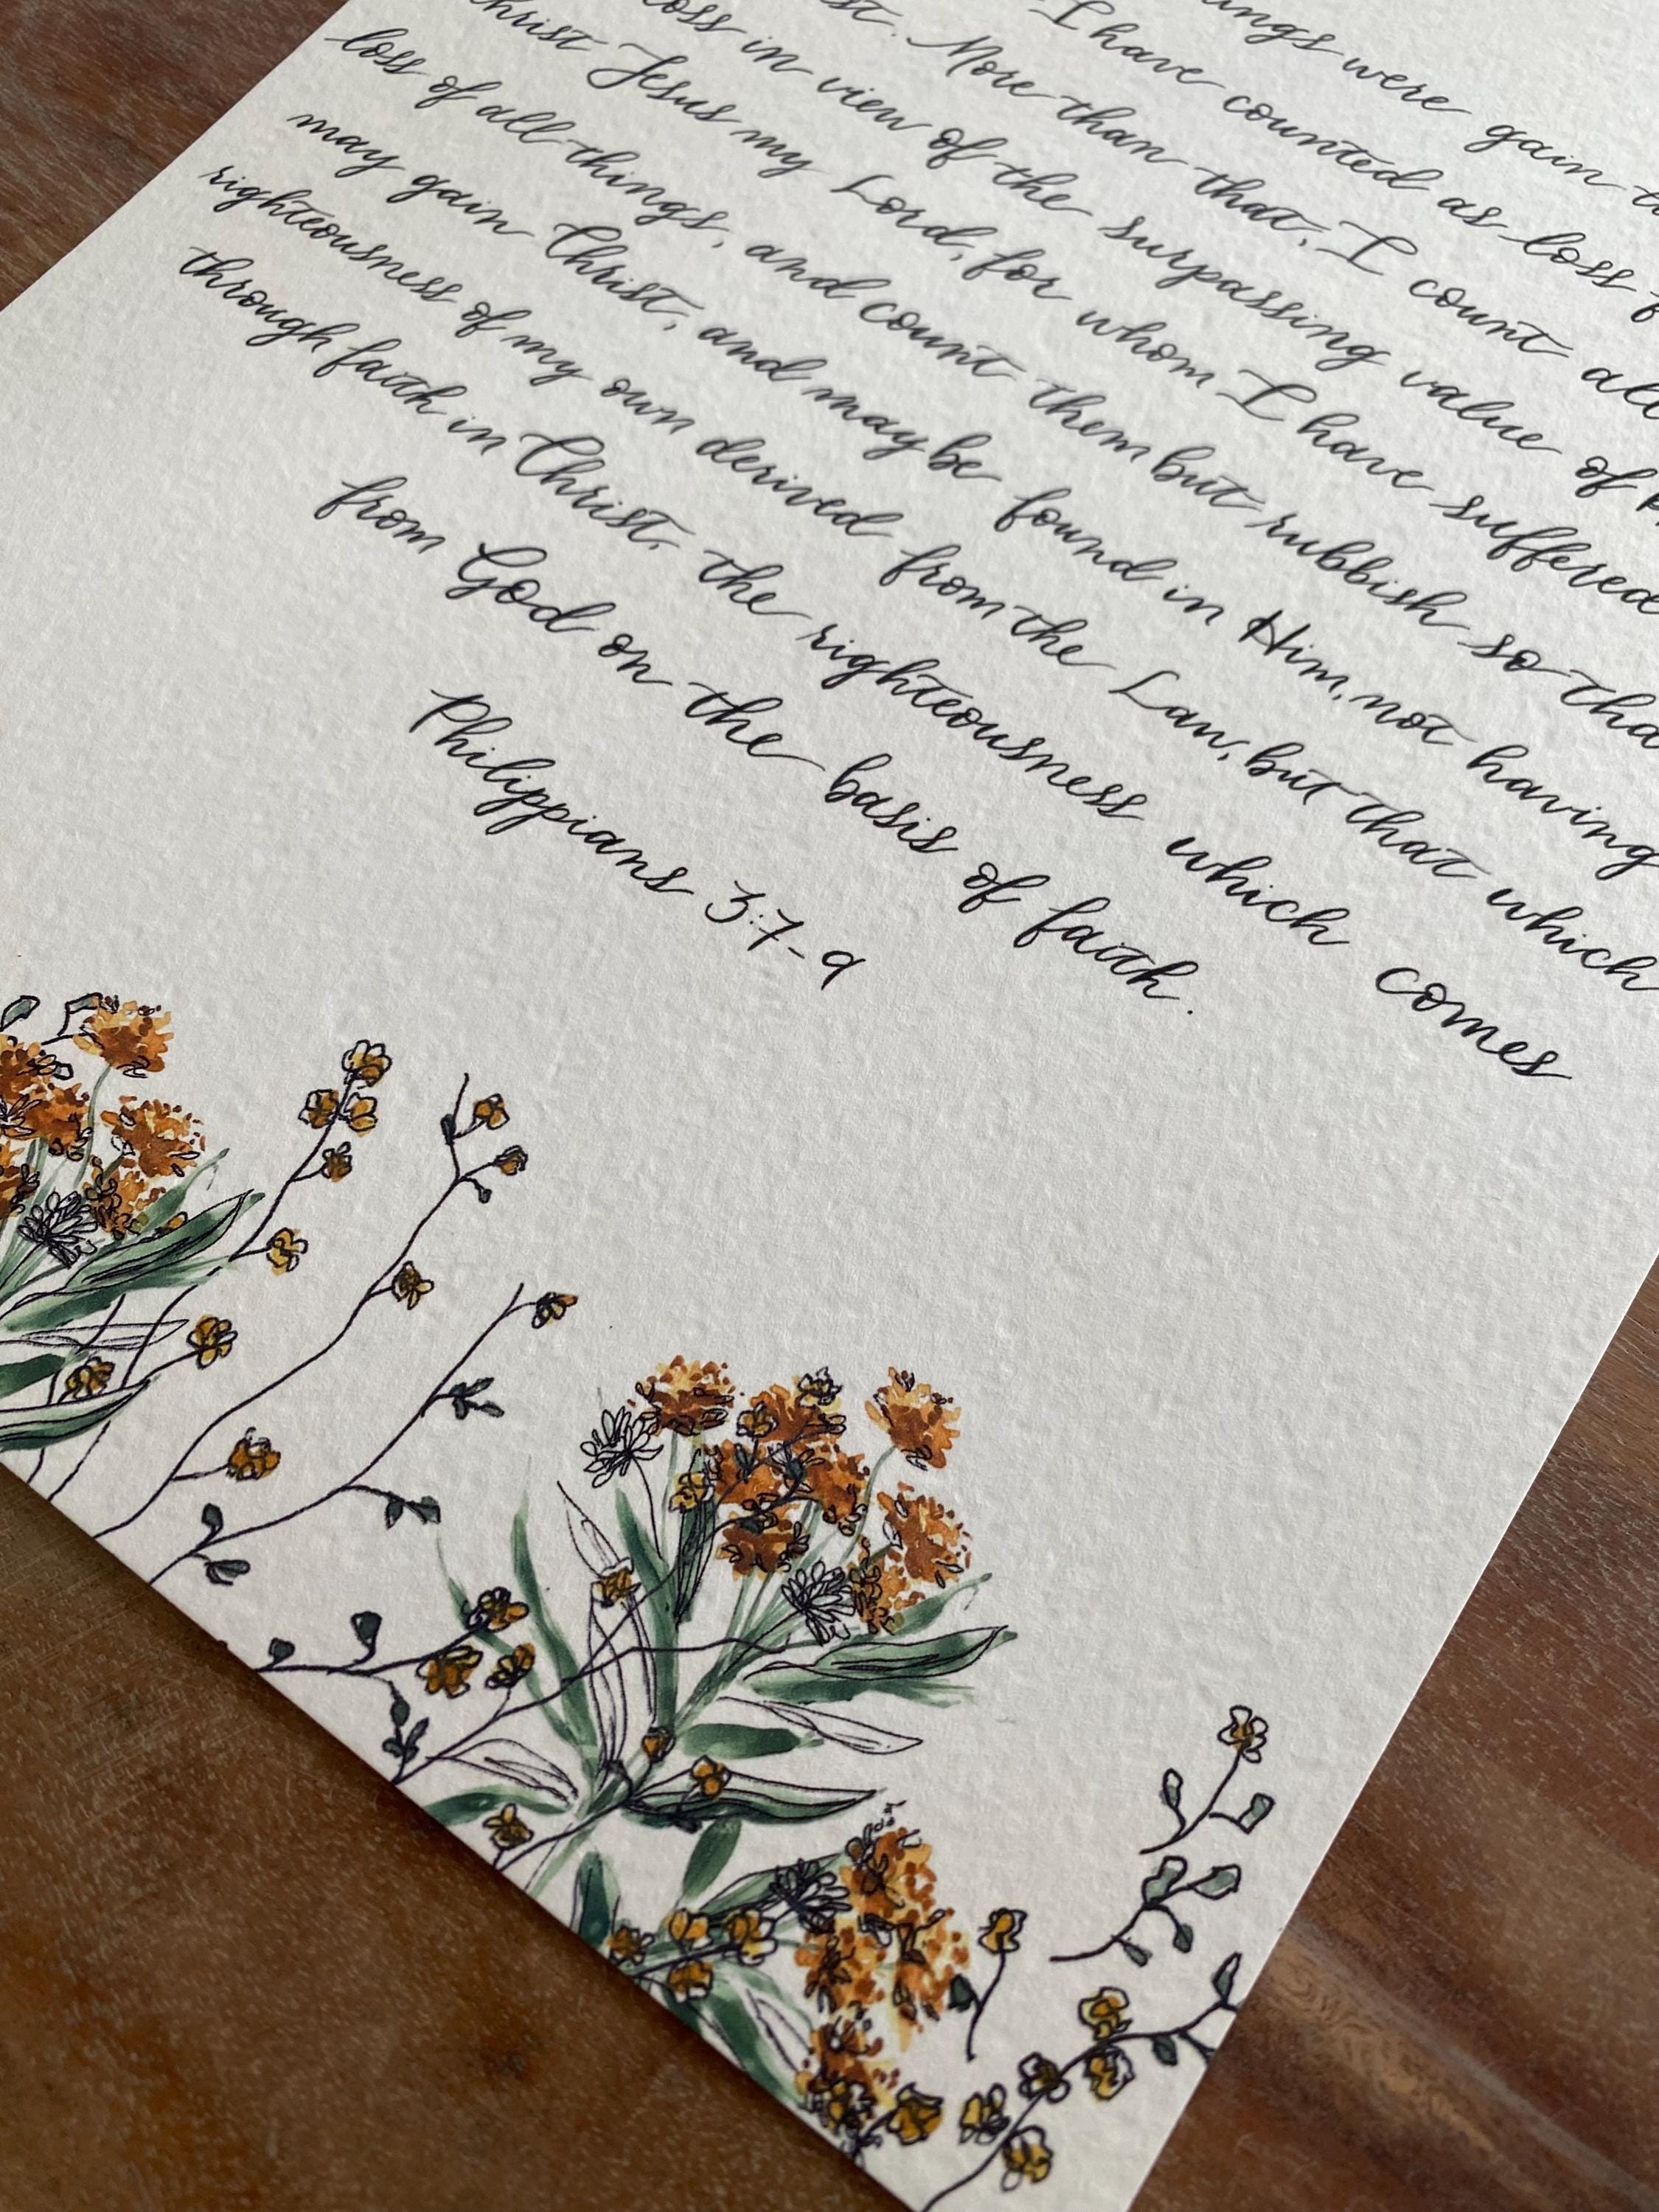 were gain
I have counted as loss
More than that, I count all
loss in view of the surpassing value of
Christ Jesus my Lord, for whom I have suffered
loss of all things, and count them but rubbish so tha
may gain Christ, and may be found in Him, not having
righteousness of my own derived from the Law, but that which
through faith in Christ, the righteousness which comes
from God on the basis of faith.
Philippians 3:7-9